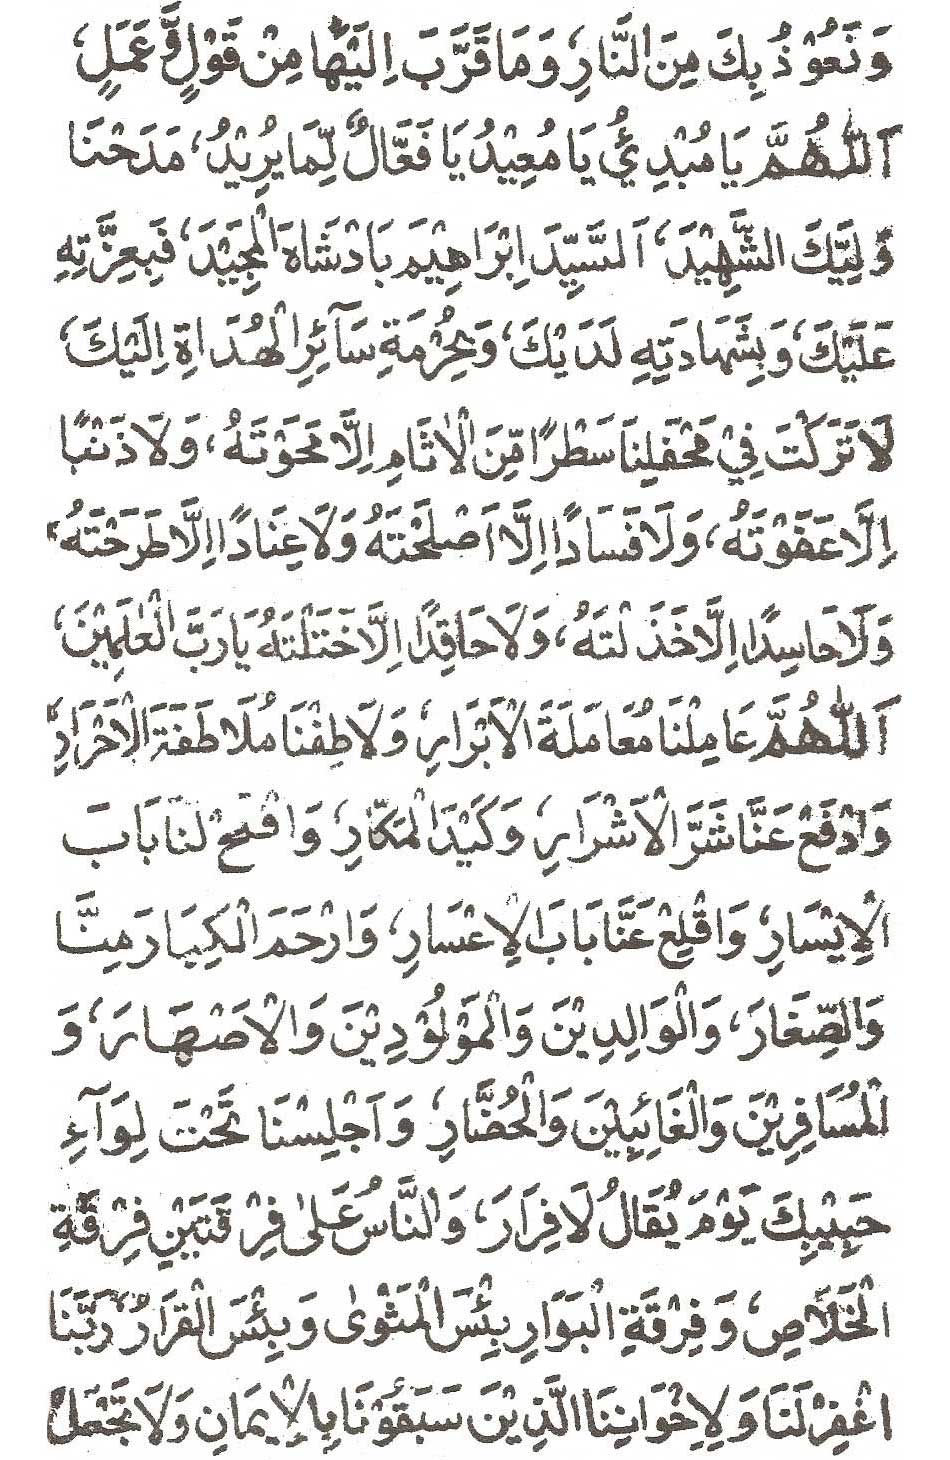 وَنَعُوْذُ بِكَ مِنَ النَّارِ، وَمَا قَرَّبَ اِلَيْهَا مِنْ قَوْلٍ وَّعَمَلٍ،
اَللّٰهُمَّ يَا مُبْدِئُ يَا مُعِيْدُ يَا فَعَّالٌ لِّمَا يُرِيْدُ، مَدَحْنَا
وَلِيَّكَ الشَّهِيْدَ، اَلسَّيِّدَ اِبْرَاهِيْمَ بَادْشَاهَ الْمَجِيْدَ، فَبِعِزَّتِهِ
عَلَيْكَ، وَبِشَهَادَتِهِ لَدَيْكَ، وَبِحُرْمَةِ سَآئِرِ الْهُدَاةِ اِلَيْكَ،
لَا تَرَكْتَ فِيْ مَحْفِلِنَا سَطْرًا مِّنَ الْاٰثَامِ اِلَّا مَحَوْتَهُ، وَلَا ذَنْبًا
اِلَّا عَفَوْتَهُ، وَلَا فَسَادًا اِلَّا اَصْلَحْتَهُ وَلَا عِنَادًا اِلَّا طَرَحْتَهُ،
وَلَا حَاسِدًا اِلَّا خَذَلْتَهُ، وَلَا حَاقِدًا اِلَّا خَتَلْتَهُ يَا رَبَّ الْعٰلَمِيْنَ،
اَللّٰهُمَّ عَامِلْنَا مُعَامَلَةَ الْاَبْرَارِ، وَلَاطِفْنَا مُلَاطَفَةَ الْاَحْرَارِ،
وَادْفَعْ عَنَّا شَرَّ الْاَشْرَارِ، وَكَيْدَ الْمَكَّارِ، وَافْتَحْ لَنَا بَابَ
الْاِيْسَارِ، وَاقْلِعْ عَنَّا بَابَ الْاِعْسَارِ، وَارْحَمِ الْكِبَارَ مِنَّا
وَالصِّغَارَ، وَالْوَالِدِيْنَ وَالْمَوْلُوْدِيْنَ وَالْاَصْهَارَ، وَ
الْمُسَافِرِيْنَ وَالْغَائِبِيْنَ وَالْحُضَّارِ، وَاَجْلِسْنَا تَحْتَ لِوَآءِ
حَبِيْبِكَ يَوْمَ يُقَالُ لَا فِرَارَ، وَالنَّاسُ عَلٰى فِرْقَتَيْنِ فِرْقَةِ
الْخَلَاصِ، وَفِرْقَةِ الْبَوَارِ بِئْسَ الْمَثْوٰى وَبِئْسَ الْقَرَارُ، رَبَّنَا
اغْفِرْ لَنَا وَلِاِخْوَانِنَا الَّذِيْنَ سَبَقُوْنَا بِالْاِيْمَانِ وَلَا تَجْعَلْ